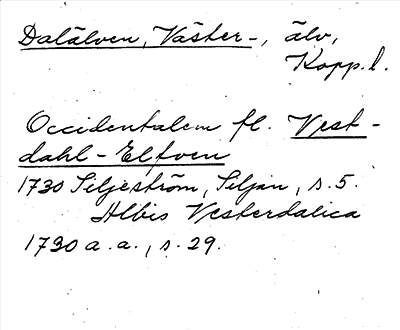 Dalälven, Väster-, älv,
Kopp.l.
Occidentalem fl. Vest-
dahl-Elfven
1730 Siljeström, Siljan, s. 5.
Albis Vesterdalica
1730 a.a., s. 29.